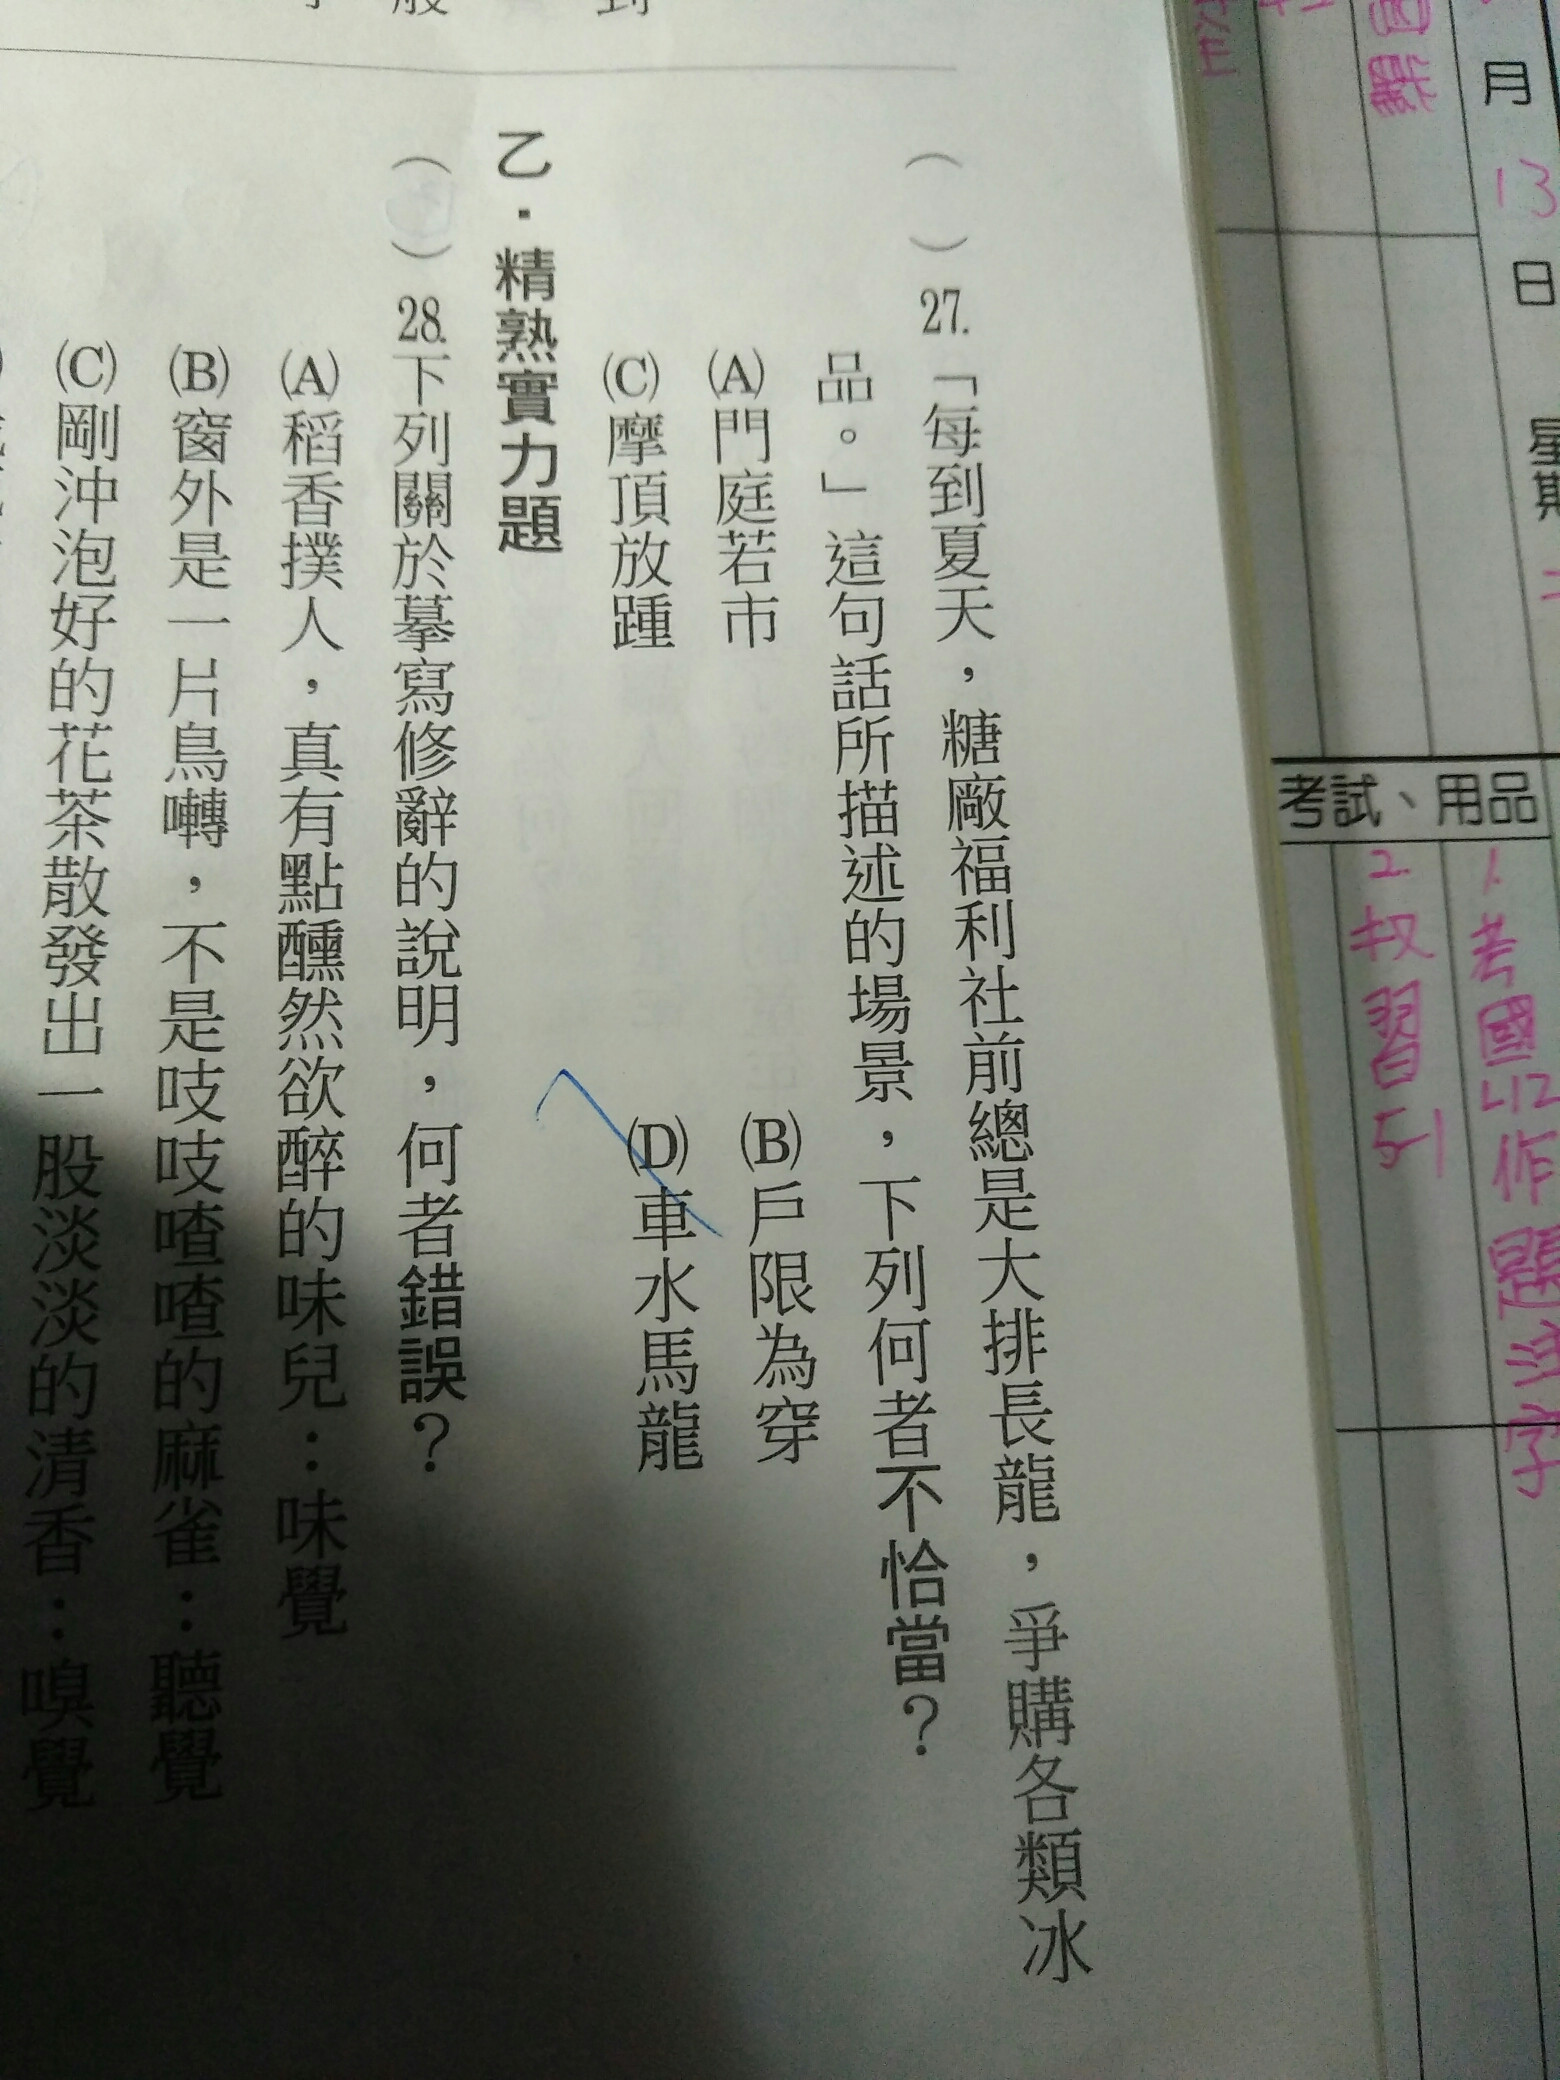 月 13 日 星期
國
考試、用品
1. 考國L12作 題注字
2. 習5-1
( ) 27.「每到夏天，糖廠福利社前總是大排長龍，爭購各類冰
品。」這句話所描述的場景，下列何者不恰當？
(A)門庭若市 (B)戶限為穿
(C)摩頂放踵 (D)車水馬龍
乙．精熟實力題
( ) 28.下列關於摹寫修辭的說明，何者錯誤？
(A)稻香撲人，真有點醺然欲醉的味兒：味覺
(B)窗外是一片鳥囀，不是吱吱喳喳的麻雀：聽覺
(C)剛沖泡好的花茶散發出一股淡淡的清香：嗅覺